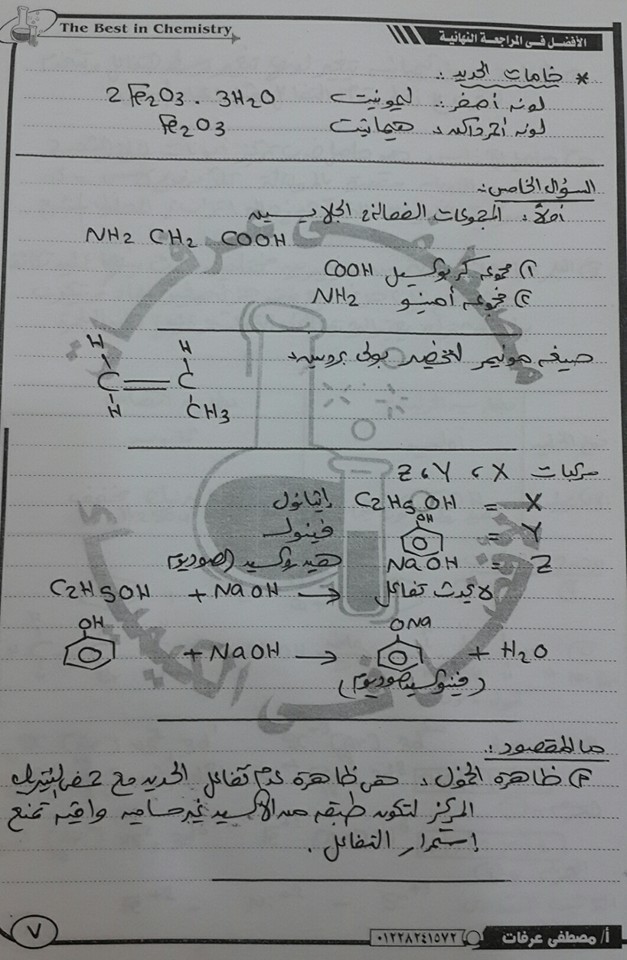 The Best in Chemistry
الأفضل فى المراجعة النهائية
* خامات الحديد :
لونه أصفر : ليمونيت 2Fe2O3 . 3H2O
لونه أحمر داكن : هيماتيت Fe2O3
السؤال الخامس :
أولاً : المجموعات الفعالة فى الجلايسين
NH2 CH2 COOH
١) مجموعة كربوكسيل COOH
٢) مجموعة أمينو NH2
صيغة مونيمر لتحضير بولى بروبين
H H
C = C
H CH3
مركبات X ، Y ، Z
X = C2H5OH إيثانول
OH
Y = فينول
Z = NaOH هيدروكسيد الصوديوم
C2H5OH + NaOH → لا يحدث تفاعل
OH ONa
+ NaOH → + H2O
(فينوكسيد صوديوم)
ما المقصود :
٣) ظاهرة الخمول : هى ظاهرة عدم تفاعل الحديد مع حمض النيتريك
المركز لتكون طبقة من الأكسيد غير مسامية واقية تمنع
إستمرار التفاعل .
٧
أ/ مصطفى عرفات
٠١٢٢٨٢٤١٥٧٢